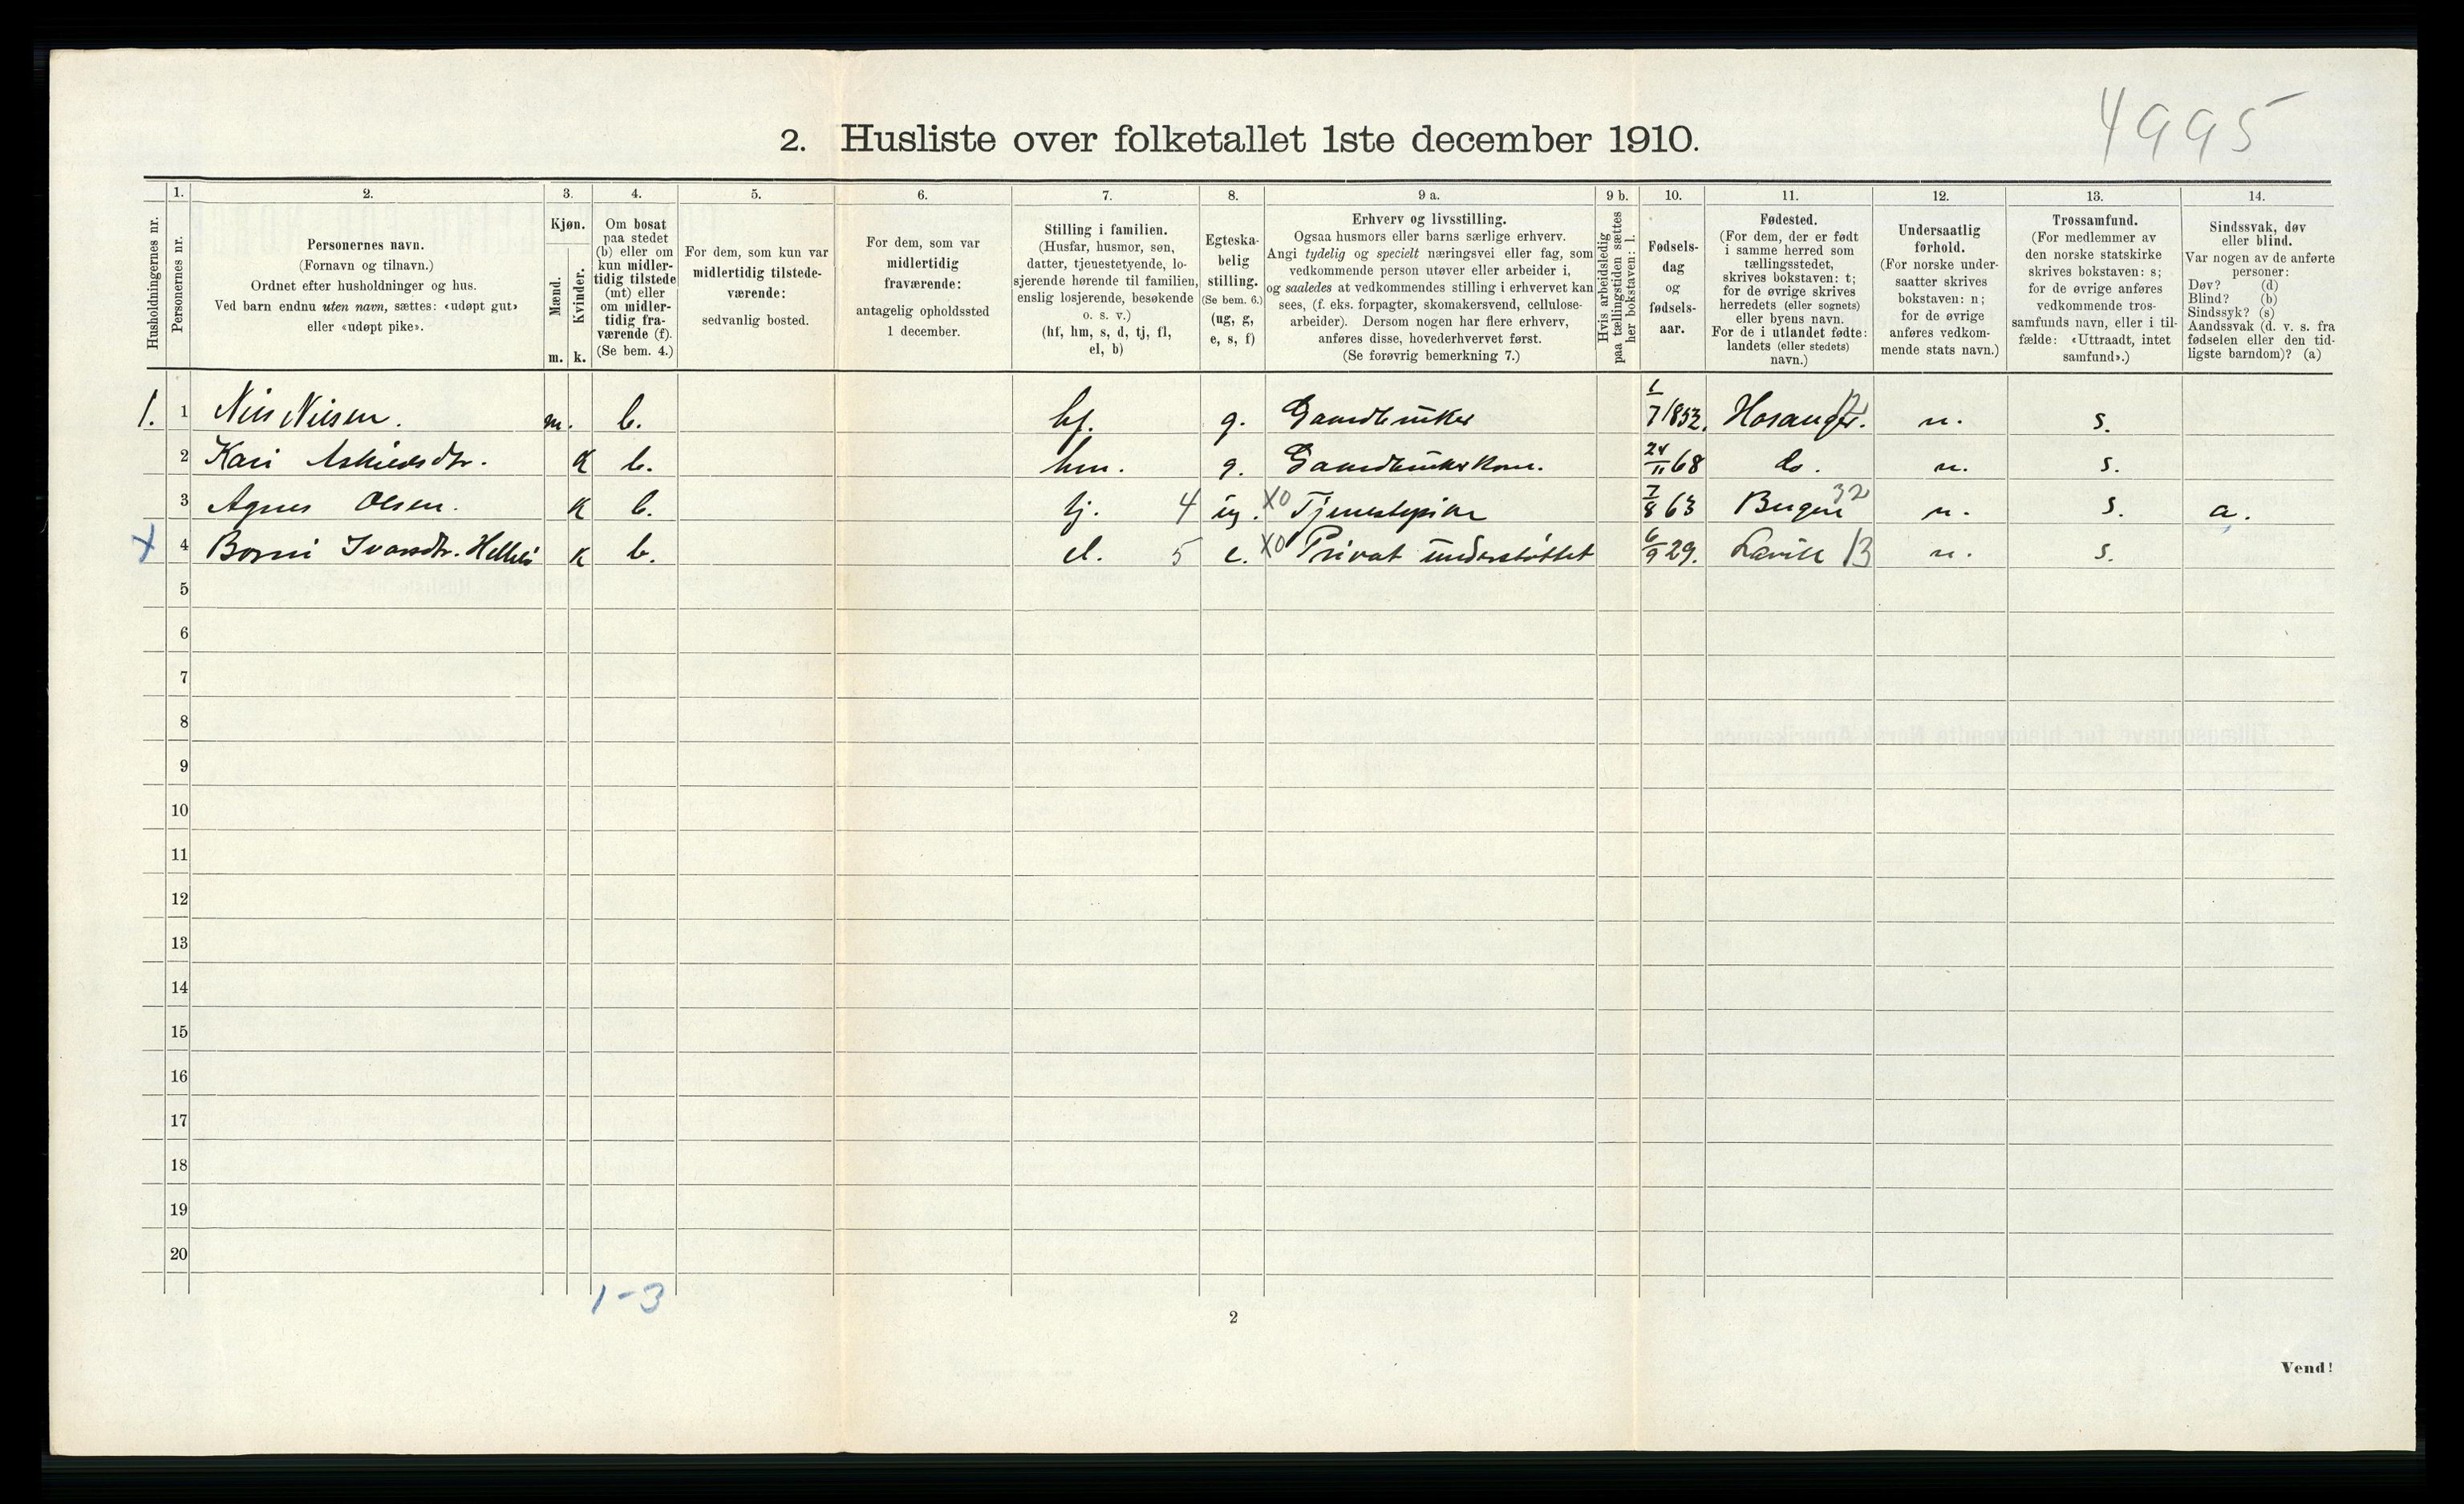 4995
2. Husliste over folketallet 1ste december 1910.
Husholdningernes nr.
1. Personernes nr.
2. Personernes navn.
(Fornavn og tilnavn.)
Ordnet efter husholdninger og hus.
Ved barn endnu uten navn, sættes: «udøpt gut»
eller «udøpt pike».
3. Kjøn.
Mænd. m.
Kvinder. k.
4. Om bosat
paa stedet
(b) eller om
kun midler-
tidig tilstede
(mt) eller
om midler-
tidig fra-
værende (f).
(Se bem. 4.)
5. For dem, som kun var
midlertidig tilstede-
værende:
sedvanlig bosted.
6. For dem, som var
midlertidig
fraværende:
antagelig opholdssted
1 december.
7. Stilling i familien.
(Husfar, husmor, søn,
datter, tjenestetyende, lo-
sjerende hørende til familien,
enslig losjerende, besøkende
o. s. v.)
(hf, hm, s, d, tj, fl,
el, b)
8. Egteska-
belig
stilling.
(Se bem. 6.)
(ug, g,
e, s, f)
9 a. Erhverv og livsstilling.
Ogsaa husmors eller barns særlige erhverv.
Angi tydelig og specielt næringsvei eller fag, som
vedkommende person utøver eller arbeider i,
og saaledes at vedkommendes stilling i erhvervet kan
sees, (f. eks. forpagter, skomakersvend, cellulose-
arbeider). Dersom nogen har flere erhverv,
anføres disse, hovederhvervet først.
(Se forøvrig bemerkning 7.)
9 b. Hvis arbeidsledig
paa tællingstiden sættes
her bokstaven: l.
10. Fødsels-
dag
og
fødsels-
aar.
11. Fødested.
(For dem, der er født
i samme herred som
tællingsstedet,
skrives bokstaven: t;
for de øvrige skrives
herredets (eller sognets)
eller byens navn.
For de i utlandet fødte:
landets (eller stedets)
navn.)
12. Undersaatlig
forhold.
(For norske under-
saatter skrives
bokstaven: n;
for de øvrige
anføres vedkom-
mende stats navn.)
13. Trossamfund.
(For medlemmer av
den norske statskirke
skrives bokstaven: s;
for de øvrige anføres
vedkommende tros-
samfunds navn, eller i til-
fælde: «Uttraadt, intet
samfund».)
14. Sindssvak, døv
eller blind.
Var nogen av de anførte
personer:
Døv? (d)
Blind? (b)
Sindssyk? (s)
Aandssvak (d. v. s. fra
fødselen eller den tid-
ligste barndom)? (a)
1. 1 Nils Nilsen. m. b. hf. g. Gaardbruker 1/7 1852. Hosanger. n. s.
2 Kari Askilds dtr. K b. hm. g. Gaardbrukerkone. 24/11 68 do. n. s.
3 Agnes Olsen. K b. tj. 4 ug. X0 Tjenestepike 7/8 63 Bergen 32 n. s. a.
X 4 Borni Ivarsdtr. K b. el. 5 e. X0 Privat understøttet 6/9 29. Lavik 13 n. s.
5
6
7
8
9
10
11
12
13
14
15
16
17
18
19
20
1-3
2
Vend!